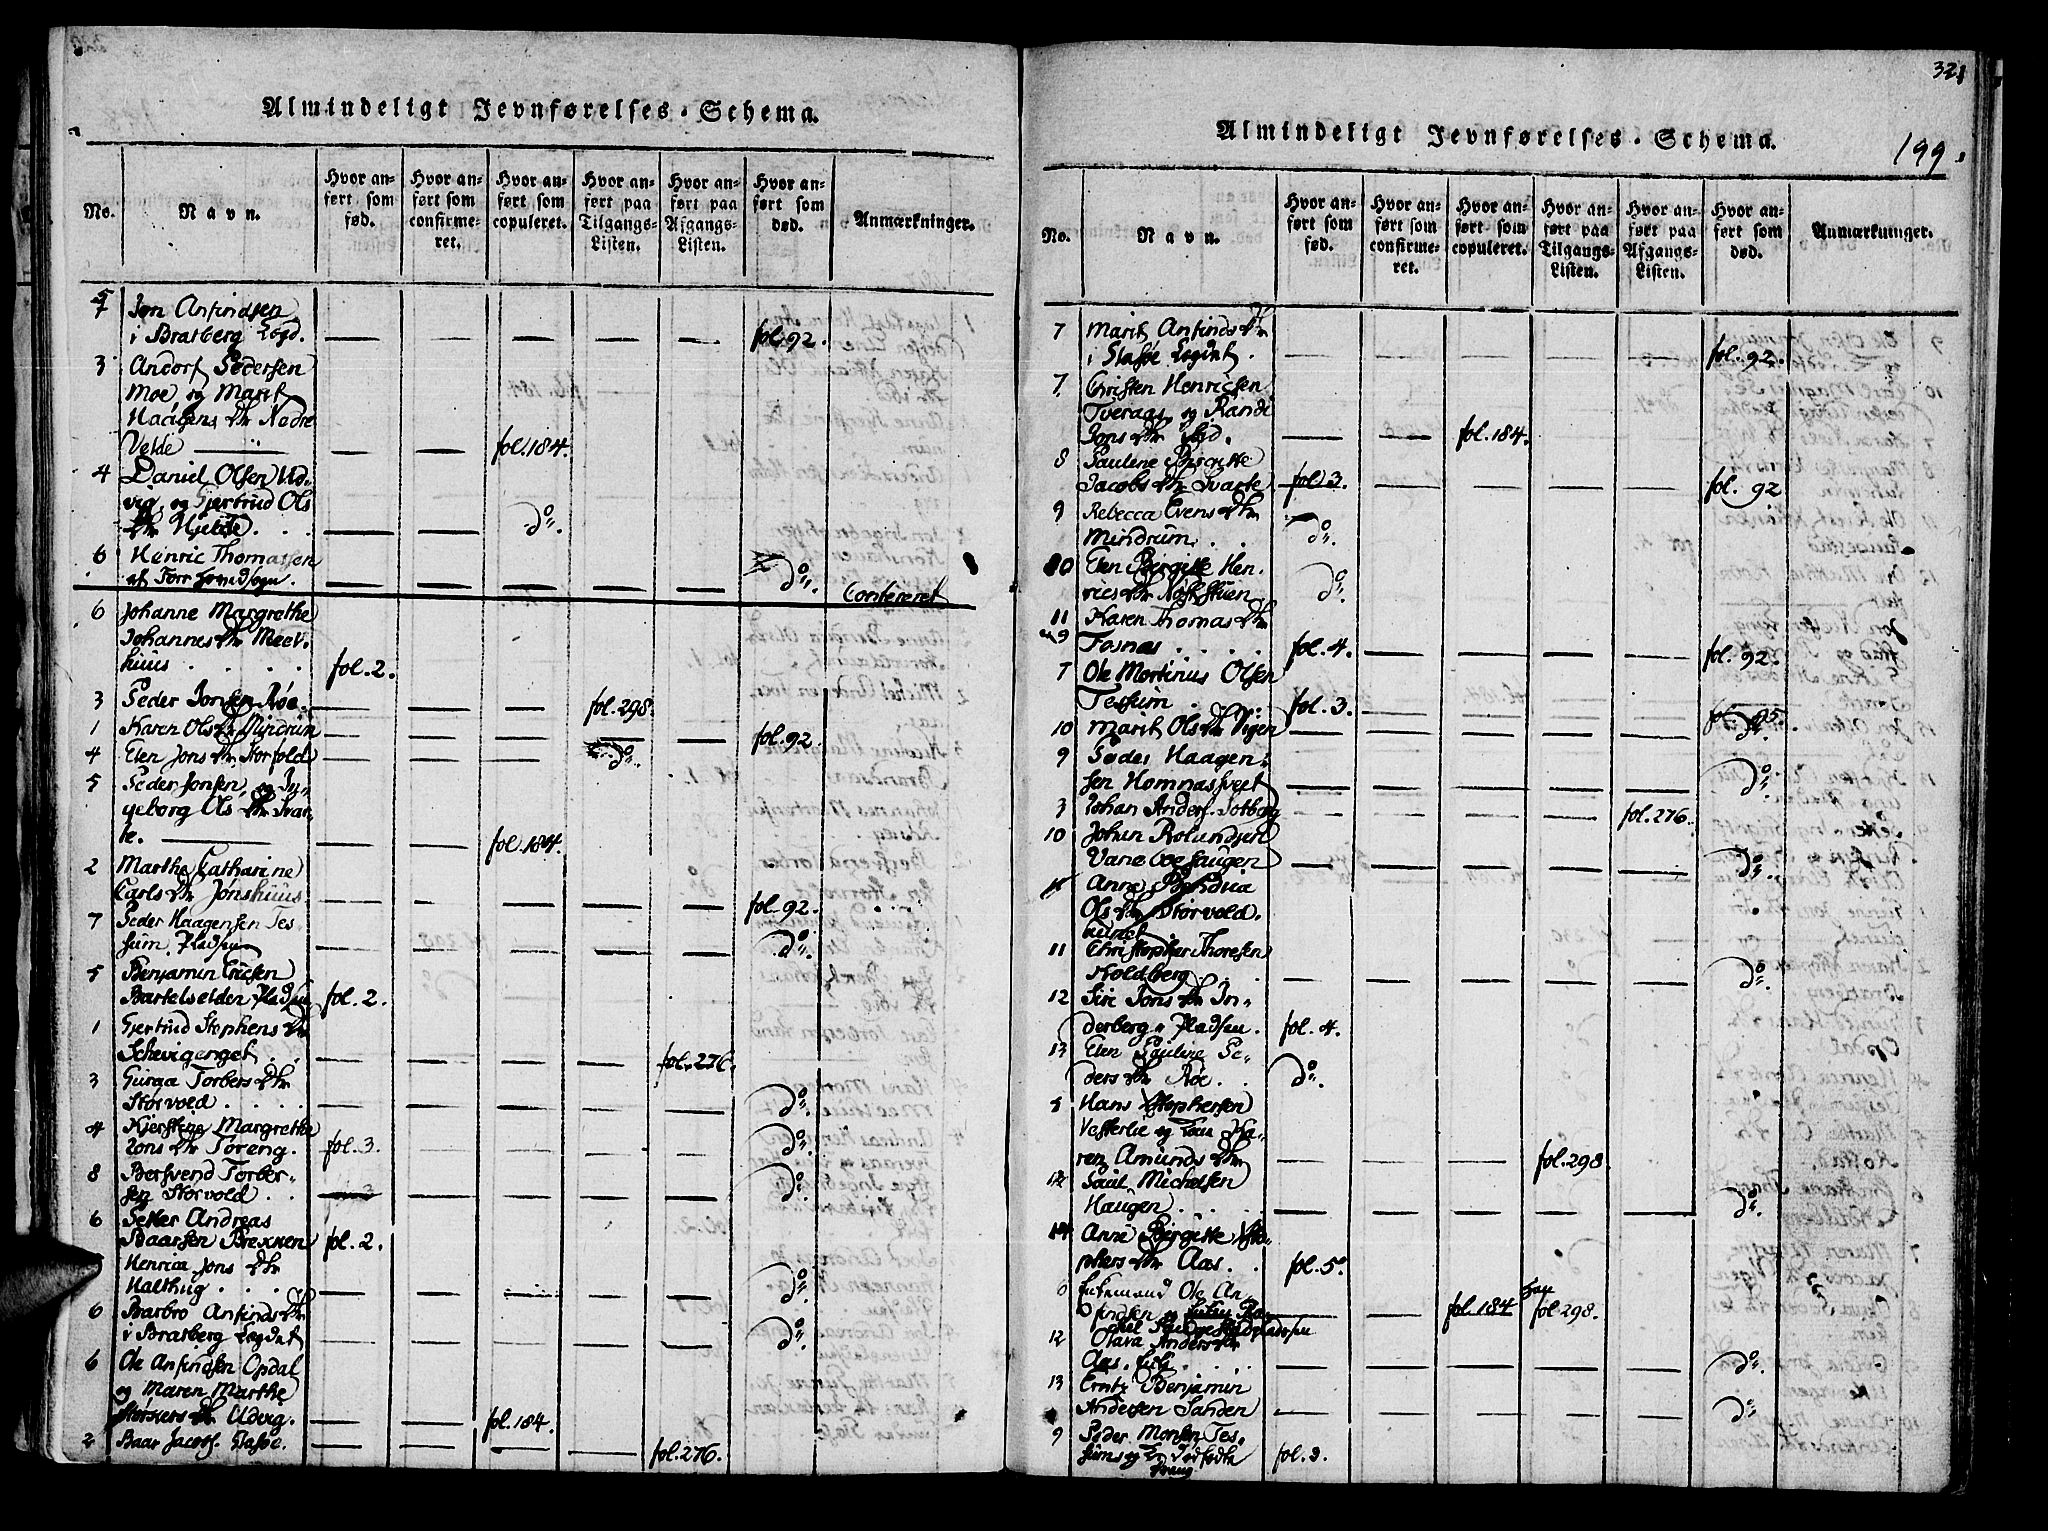 Almindeligt Jevnførelses-Schema.
No.
Navn.
Hvor an-
ført som
fød.
Hvor an-
ført som
confirme-
ret.
Hvor an-
ført som
copuleret.
Hvor an-
ført paa
Tilgangs-
Listen.
Hvor an-
ført paa
Afgangs-
Listen.
Hvor an-
ført som
død.
Anmærkninger.
5 Jon Anfindsen
i Brasberg Legd. — — — — — fol. 92.
3 Andors Pedersen
Moe, og Marit
Haagens Dtr Nedre
Velde — — fol. 184.
4 Daniel Olsen Ud-
vig, og Gjertrud Ols
Dtr Hjelde. — — do.
6 Henric Thomassen
— — — — — do. Confereret
6 Johanne Margrethe
Johannes Dtr Meel-
huus . . . . fol. 2.
3 Peder Jonsen Røe. — — — fol. 298.
1 Karen Ols Dtr Mindrum — — — — — fol. 92.
4 Elen Jons Dtr Storfold — — — do.
5 Peder Jonsen, og In-
geborg Ols Dtr Svar-
te. — — — fol. 184.
2 Marthe Catharine
Carls Dtr Jonshuus — — — — — fol. 92.
7 Peder Haagensen Tes-
sum Pladsen — — — — — do.
5 Benjamin Ericsen
Bartelselden Pladsen fol. 2.
1 Gjertrud Stephens Dtr
— — — — fol. 276.
3 Guraa Torbers Dtr
Storvold . . . . — — — — — do.
4 Kjerstine Margrethe
Jons Dtr Toreng. fol. 3. — — — — do.
8 Bersvend Torber-
sen Storvold . . — — — — do.
6 Petter Andreas
Baarsen Brekken fol. 2.
Henrica Jons Dtr
Halthug . . . . — — — — — do.
6 Barbro Anfinds Dtr
i Brasberg Legdet — — — — — do.
6 Ole Anfindsen Opdal
og Maren Marthe
Dtr Udvig. — — fol. 184.
2 Baar Jacobs. Stafve. — — — — fol. 276.
321
199.
Almindeligt Jevnførelses-Schema.
No.
Navn.
Hvor an-
ført som
fød.
Hvor an-
ført som
confirme-
ret.
Hvor an-
ført som
copuleret.
Hvor an-
ført paa
Tilgangs-
Listen.
Hvor an-
ført paa
Afgangs-
Listen.
Hvor an-
ført som
død.
Anmærkninger.
7 Marit Anfinds Dtr
i Stafve Legdet . — — — — — fol. 92.
7. Christen Henricsen
Tveraas, og Randi
Jons Dtr ibid. — — fol. 184.
8 Pauline Birgitte
Jacobs Dtr Svarte fol. 3. — — — — fol. 92
9 Rebecca Evens Dtr
Mindrum. . . do.
10 Elen Birgitte Hen-
rics Dtr do.
11 Karen Thomas Dtr
Fosnas . . . . fol. 4. — — — — fol. 92.
7 Ole Martinus Olsen
Tessum . . . fol. 3. — — — —
10 Marit Ols Dtr Vigen — — — — — do.
9 Peder Haagen-
sen — — — — — do.
3 Johan Anders. Solberg — — — — fol. 276.
10 Johan Rolandsen
— — — — — do.
Anne
Ols Dtr Storvold.
11 Christopher Thoresen
Koldberg . . . — — — — — do.
12 Siri Jons Dtr In-
derberg Pladsen. fol. 4.
13 Elen Pauline Pe-
ders Dtr Røe. . do.
5 Hans Stophersen
Vesterlie og Kone Ka-
ren Amunds Dtr — — — fol. 298.
12 Paul Michelsen
Haugen . . . . — — — — — do.
14 Anne Birgitte Sto-
phers Dtr Aas. . fol. 5.
Ole An-
findsen og — — fol. 184 fol. 298.
12 Olava Anders Dtr
Aas. . . . — — — — — do.
13 Ernts Benjamin
Andersen Sanden — — — — — do.
9 Peder Monsen Tes-
sum og fol. 3.